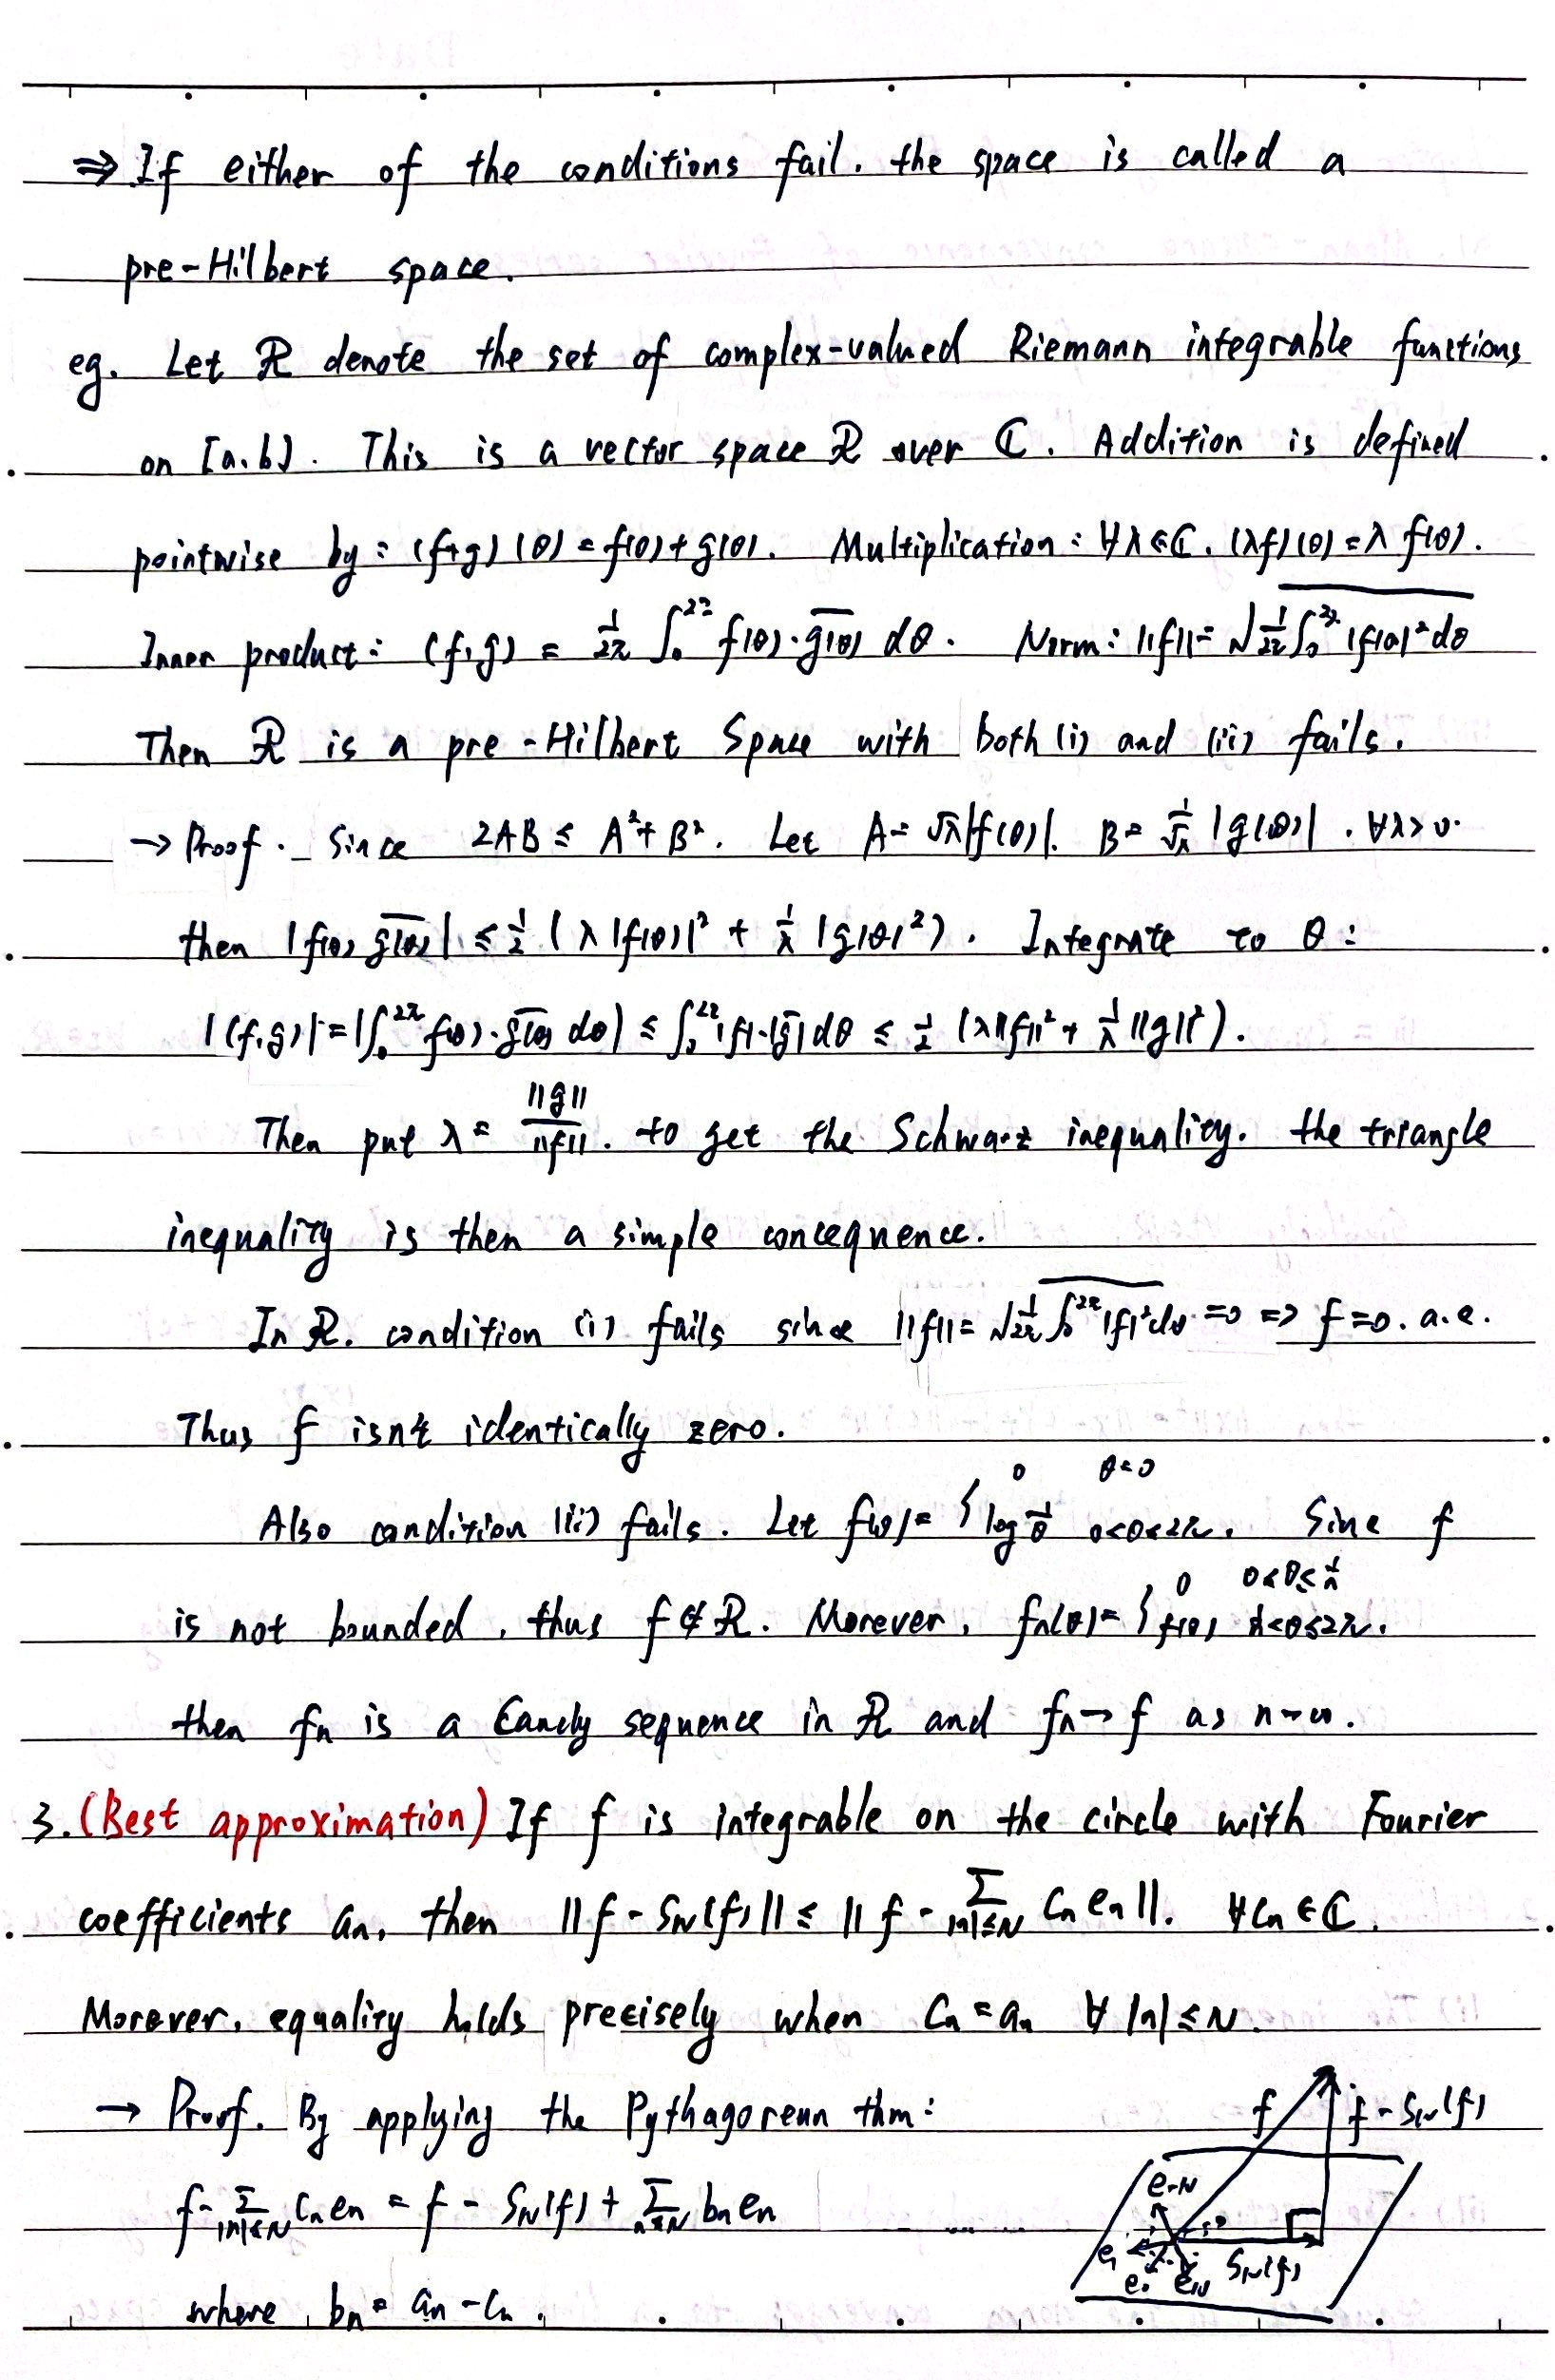 ⇒ If either of the conditions fail. the space is called a
pre-Hilbert space.
eg. Let ℛ denote the set of complex-valued Riemann integrable functions
on [a,b]. This is a vector space ℛ over ℂ. Addition is defined
pointwise by: (f+g)(θ) = f(θ)+g(θ). Multiplication: ∀λ∈ℂ. (λf)(θ) = λ f(θ).
Inner product: (f,g) = 1/2π ∫₀^2π f(θ)·\overline{g(θ)} dθ. Norm: ||f|| = √(1/2π ∫₀^2π |f(θ)|² dθ)
Then ℛ is a pre-Hilbert Space with both (i) and (ii) fails.
→ Proof. Since 2AB ≤ A²+B². Let A = √λ|f(θ)|. B = 1/√λ |g(θ)|. ∀λ>0.
then |f(θ) \overline{g(θ)}| ≤ 1/2 (λ|f(θ)|² + 1/λ |g(θ)|²). Integrate to θ:
|(f,g)| = |∫₀^2π f(θ)·\overline{g(θ)} dθ| ≤ ∫₀^2π |f|·|\overline{g}| dθ ≤ 1/2 (λ||f||² + 1/λ ||g||²).
Then put λ = ||g||/||f||. to get the Schwarz inequality. the triangle
inequality is then a simple concequence.
In ℛ. condition (i) fails since ||f|| = √(1/2π ∫₀^2π |f|² dθ) = 0 ⇒ f=0. a.e.
Thus f isn't identically zero.
Also condition (ii) fails. Let f(θ) = { 0 θ=0 ; log 1/θ 0<θ<2π. Since f
is not bounded, thus f ∉ ℛ. Morever, fn(θ) = { 0 0<θ≤1/n ; f(θ) 1/n<θ≤2π.
then fn is a Cauchy sequence in ℛ and fn → f as n→∞.
3. (Best approximation) If f is integrable on the circle with Fourier
coefficients an, then ||f - SN(f)|| ≤ ||f - Σ_{|n|≤N} Cn en||. ∀Cn ∈ ℂ.
Morever, equality holds precisely when Cn = an ∀ |n| ≤ N.
→ Proof. By applying the Pythagorean thm:
f - Σ_{|n|≤N} Cn en = f - SN(f) + Σ_{n≤N} bn en
where bn = an - Cn.
f
f - SN(f)
e-N
e1
e0
eN
SN(f)